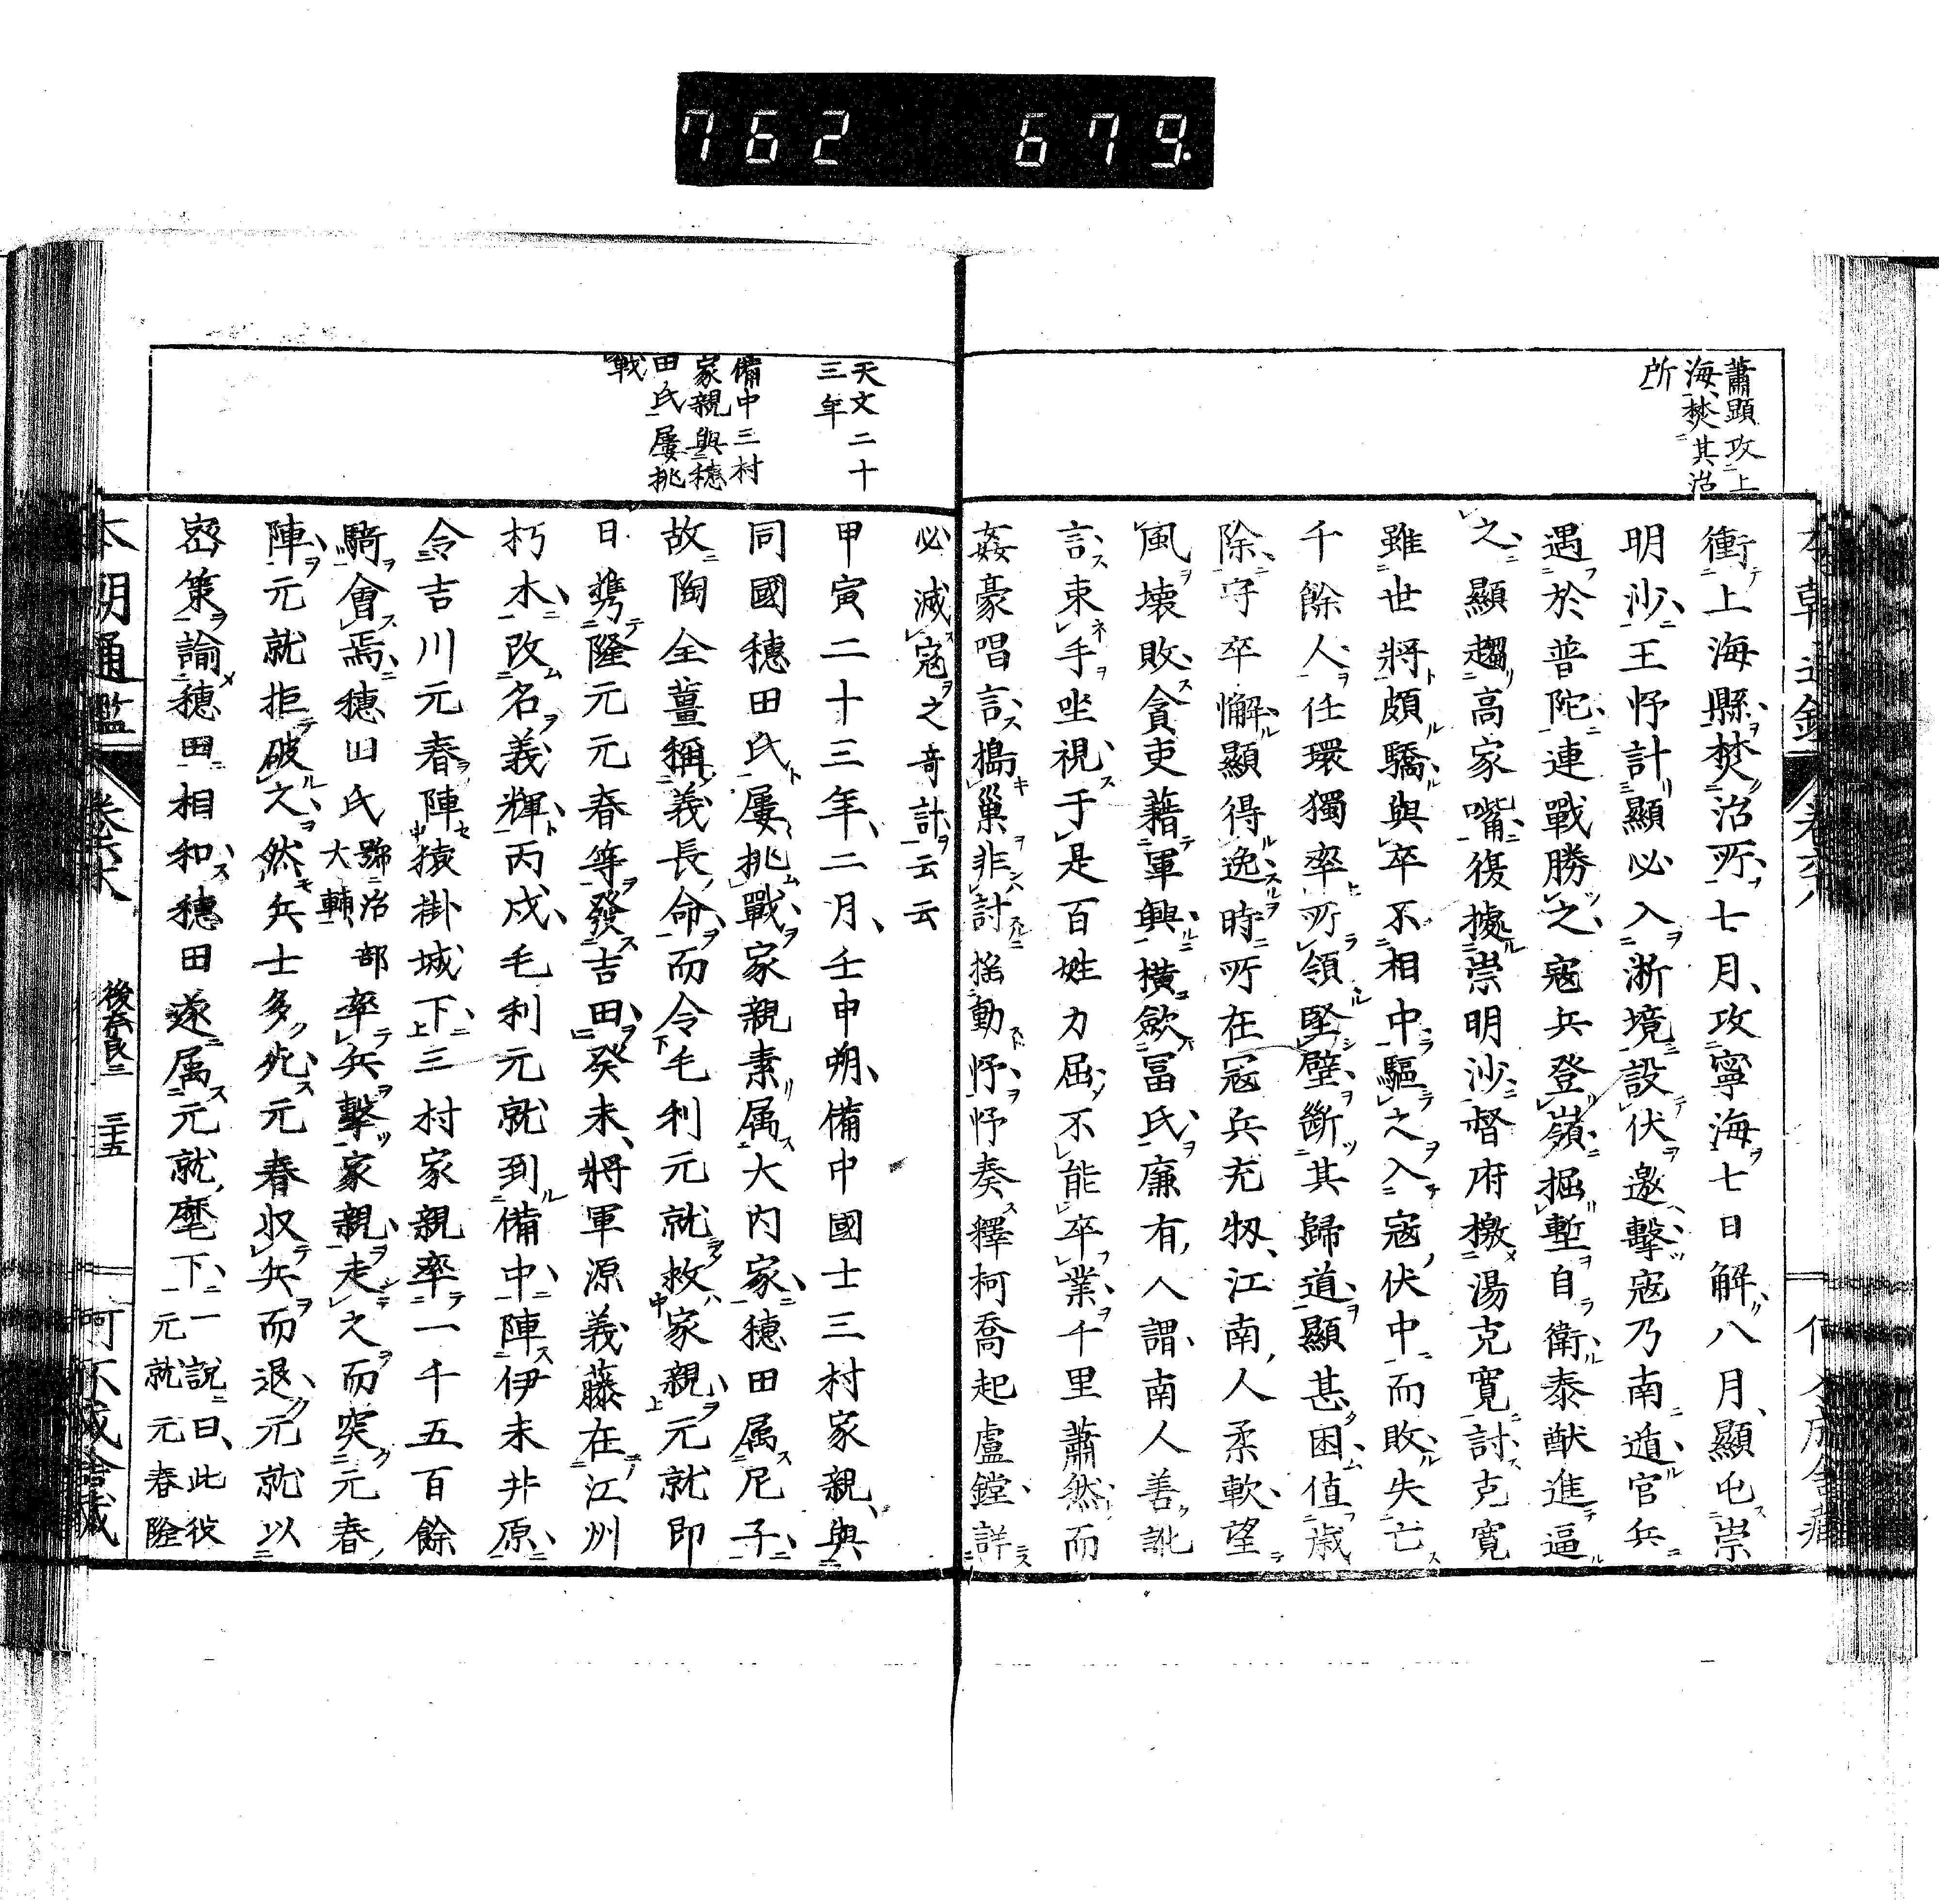 762 679.
蕭顯攻上
海焚其治
所
衝上海縣焚治所七月攻寧海七日解八月顯屯崇
明沙王忬計顯必入浙境設伏邀擊寇乃南遁官兵
遇於普陀連戰勝之寇兵登嶺掘塹自衛泰猷進逼
之顯趨高家嘴復據崇明沙督府檄湯克寬討克寬
雖世將頗驕與卒不相中驅之入寇伏中而敗失亡
千餘人任環獨率所領堅壁斷其歸道顯甚困值歲
除守卒懈顯得逸時所在冦兵充牣江南人柔軟望
風壞敗貪吏藉軍興橫歛冨氏廉有人謂南人善訛
言束手坐視于是百姓力屈不能卒業千里蕭然而
姦豪唱言搗巢非討搖動忬忬奏釋柯喬起盧鏜詳
必滅寇之奇計云云
天文二十
三年
備中三村
家親與穗
田氏屢挑
戰
甲寅二十三年二月壬申朔備中國士三村家親與
同國穗田氏屢挑戰家親素属大内家穗田属尼子
故陶全薑稱義長命而令毛利元就救家親元就即
日携隆元元春等發吉田癸未將軍源義藤在江州
朽木改名義輝丙戌毛利元就到備中陣伊未井原
令吉川元春陣猿掛城下三村家親率一千五百餘
騎會焉穗田氏號治部
大輔率兵擊家親走之而突元春
陣元就拒破之然兵士多死元春収兵而退元就以
密策諭穗田相和穗田遂属元就麾下一說曰此役
元就元春隆
本朝通鑑 後奈良二 三十五